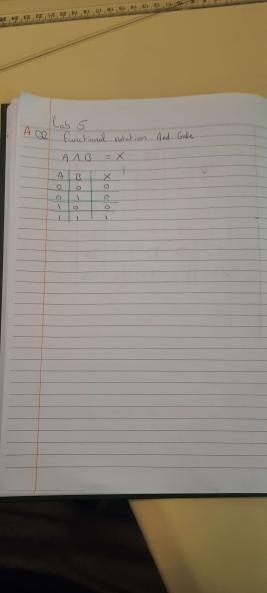 Lab 5
A Q2 Functional notation And Gate
A ∧ B = X
A B X
0 0 0
0 1 0
1 0 0
1 1 1